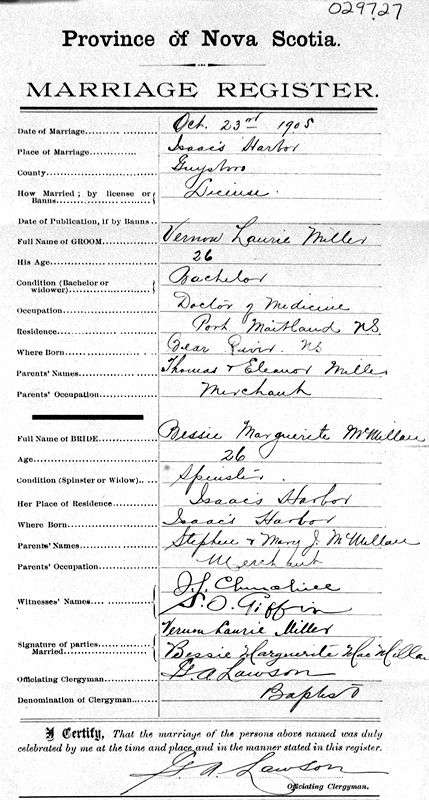 029727
Province of Nova Scotia.
MARRIAGE REGISTER.
Date of Marriage Oct. 23rd 1905
Place of Marriage Isaac's Harbor
County Guysboro
How Married; by license or Banns License.
Date of Publication, if by Banns
Full Name of GROOM Vernon Laurie Miller
His Age 26
Condition (Bachelor or widower) Bachelor
Occupation Doctor of Medicine
Residence Port Maitland NS
Where Born Bear River. NS
Parents' Names Thomas & Eleanor Miller
Parents' Occupation Merchant
Full Name of BRIDE Bessie Marguerite McMillan
Age 26
Condition (Spinster or Widow) Spinster.
Her Place of Residence Isaac's Harbor
Where Born Isaac's Harbor
Parents' Names Stephen & Mary J. McMillan
Parents' Occupation Merchant
Witnesses' Names Churchill
S. O. Giffin
Signature of parties Married Vernon Laurie Miller
Bessie Marguerite MacMillan
Officiating Clergyman A Lawson
Denomination of Clergyman Baptist
I Certify, That the marriage of the persons above named was duly
celebrated by me at the time and place, and in the manner stated in this register.
A. Lawson
Officiating Clergyman.